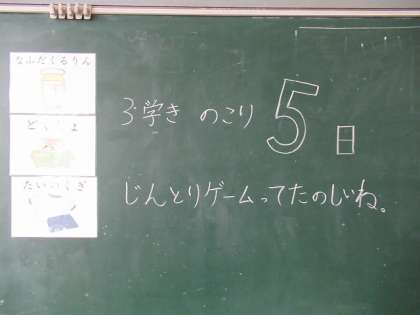 なふだくるりん
3学き のこり 5日
じんとりゲームってたのしいね。